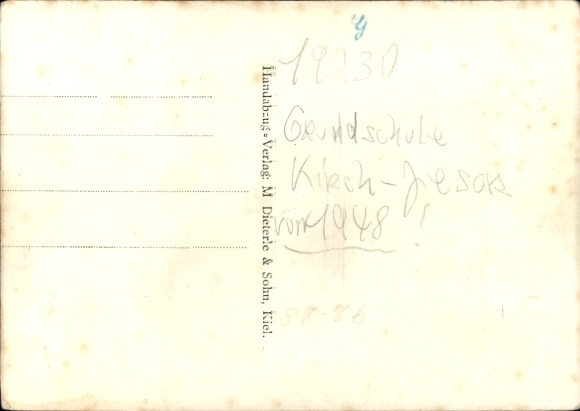 y
19230
Grundschule
Kirch-Jesar
von 1948!
Handabzug=Verlag: M Dieterle & Sohn, Kiel.